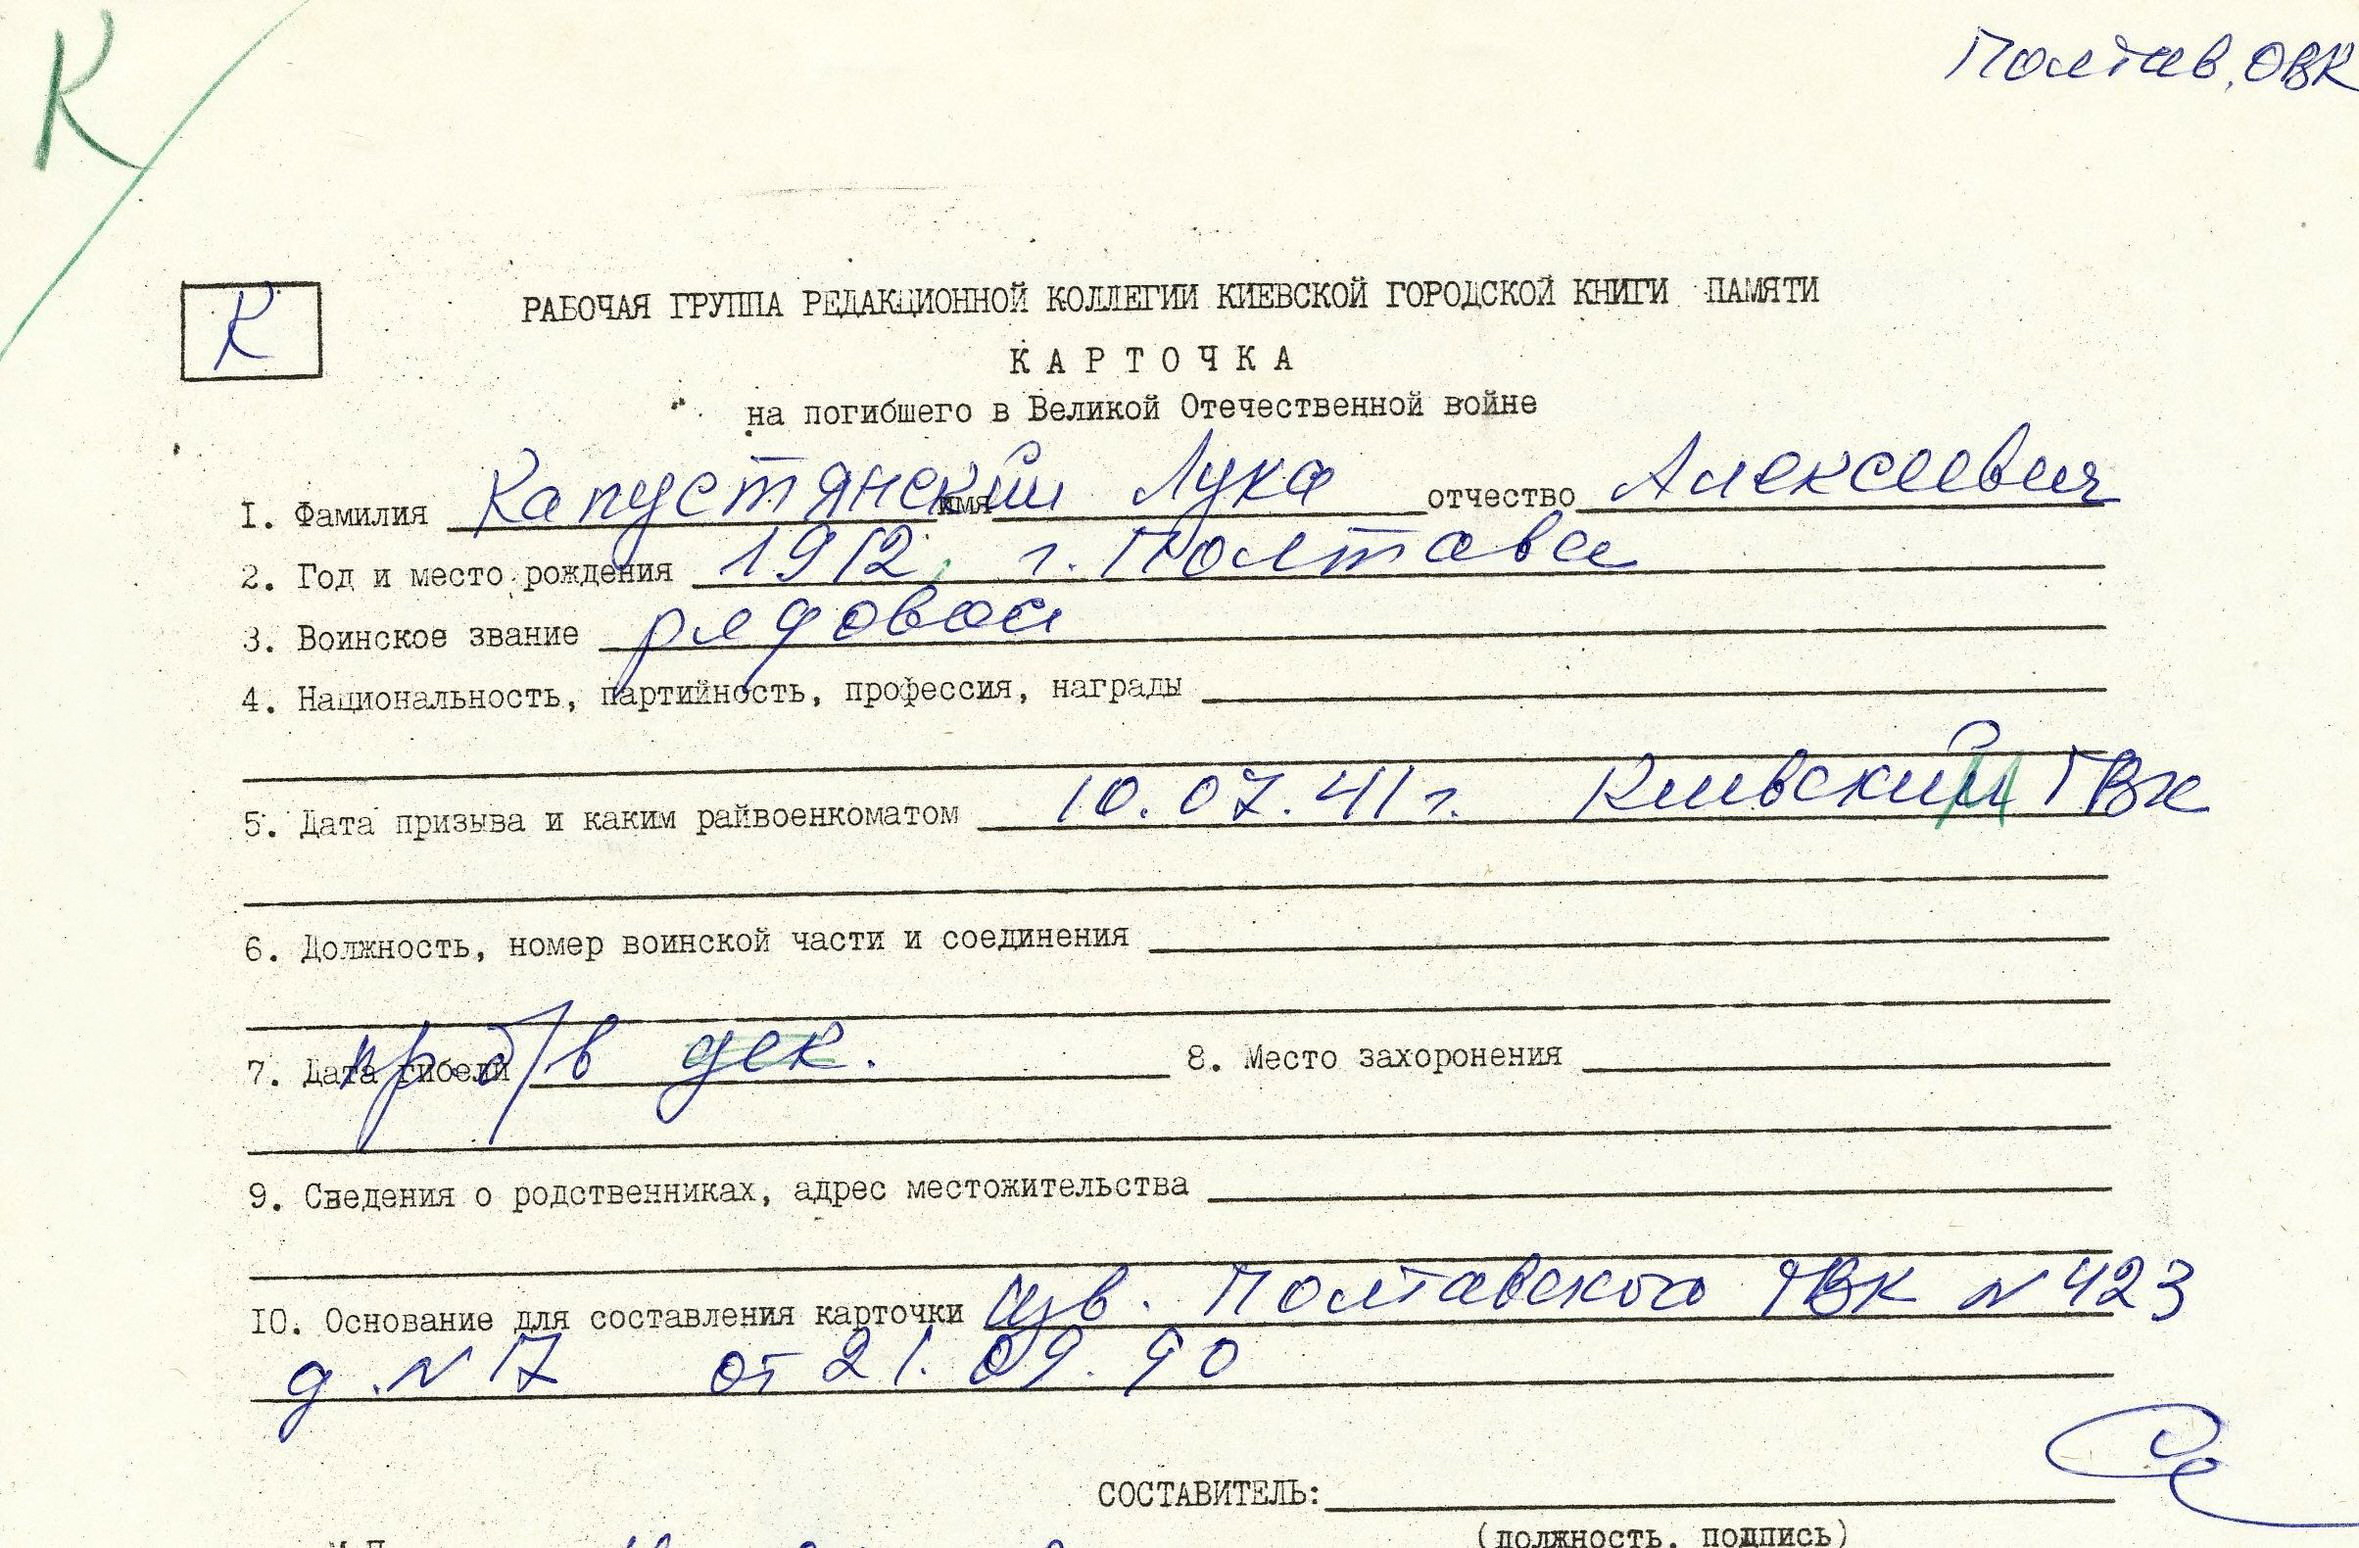 К
Полтав. ОВК
К
РАБОЧАЯ ГРУППА РЕДАКЦИОННОЙ КОЛЛЕГИИ КИЕВСКОЙ ГОРОДСКОЙ КНИГИ ПАМЯТИ
КАРТОЧКА
на погибшего в Великой Отечественной войне
1. Фамилия Капустянский имя Лука отчество Алексеевич
2. Год и место рождения 1912, г. Полтава
3. Воинское звание рядовой
4. Национальность, партийность, профессия, награды
5. Дата призыва и каким райвоенкоматом 10.07.41 г. Киевский ГВК
6. Должность, номер воинской части и соединения
7. Дата гибели пр. б/в дек. 8. Место захоронения
9. Сведения о родственниках, адрес местожительства
10. Основание для составления карточки изв. Полтавского ГВК N 423
д. N 17 от 21.09.90
СОСТАВИТЕЛЬ:
(должность, подпись)